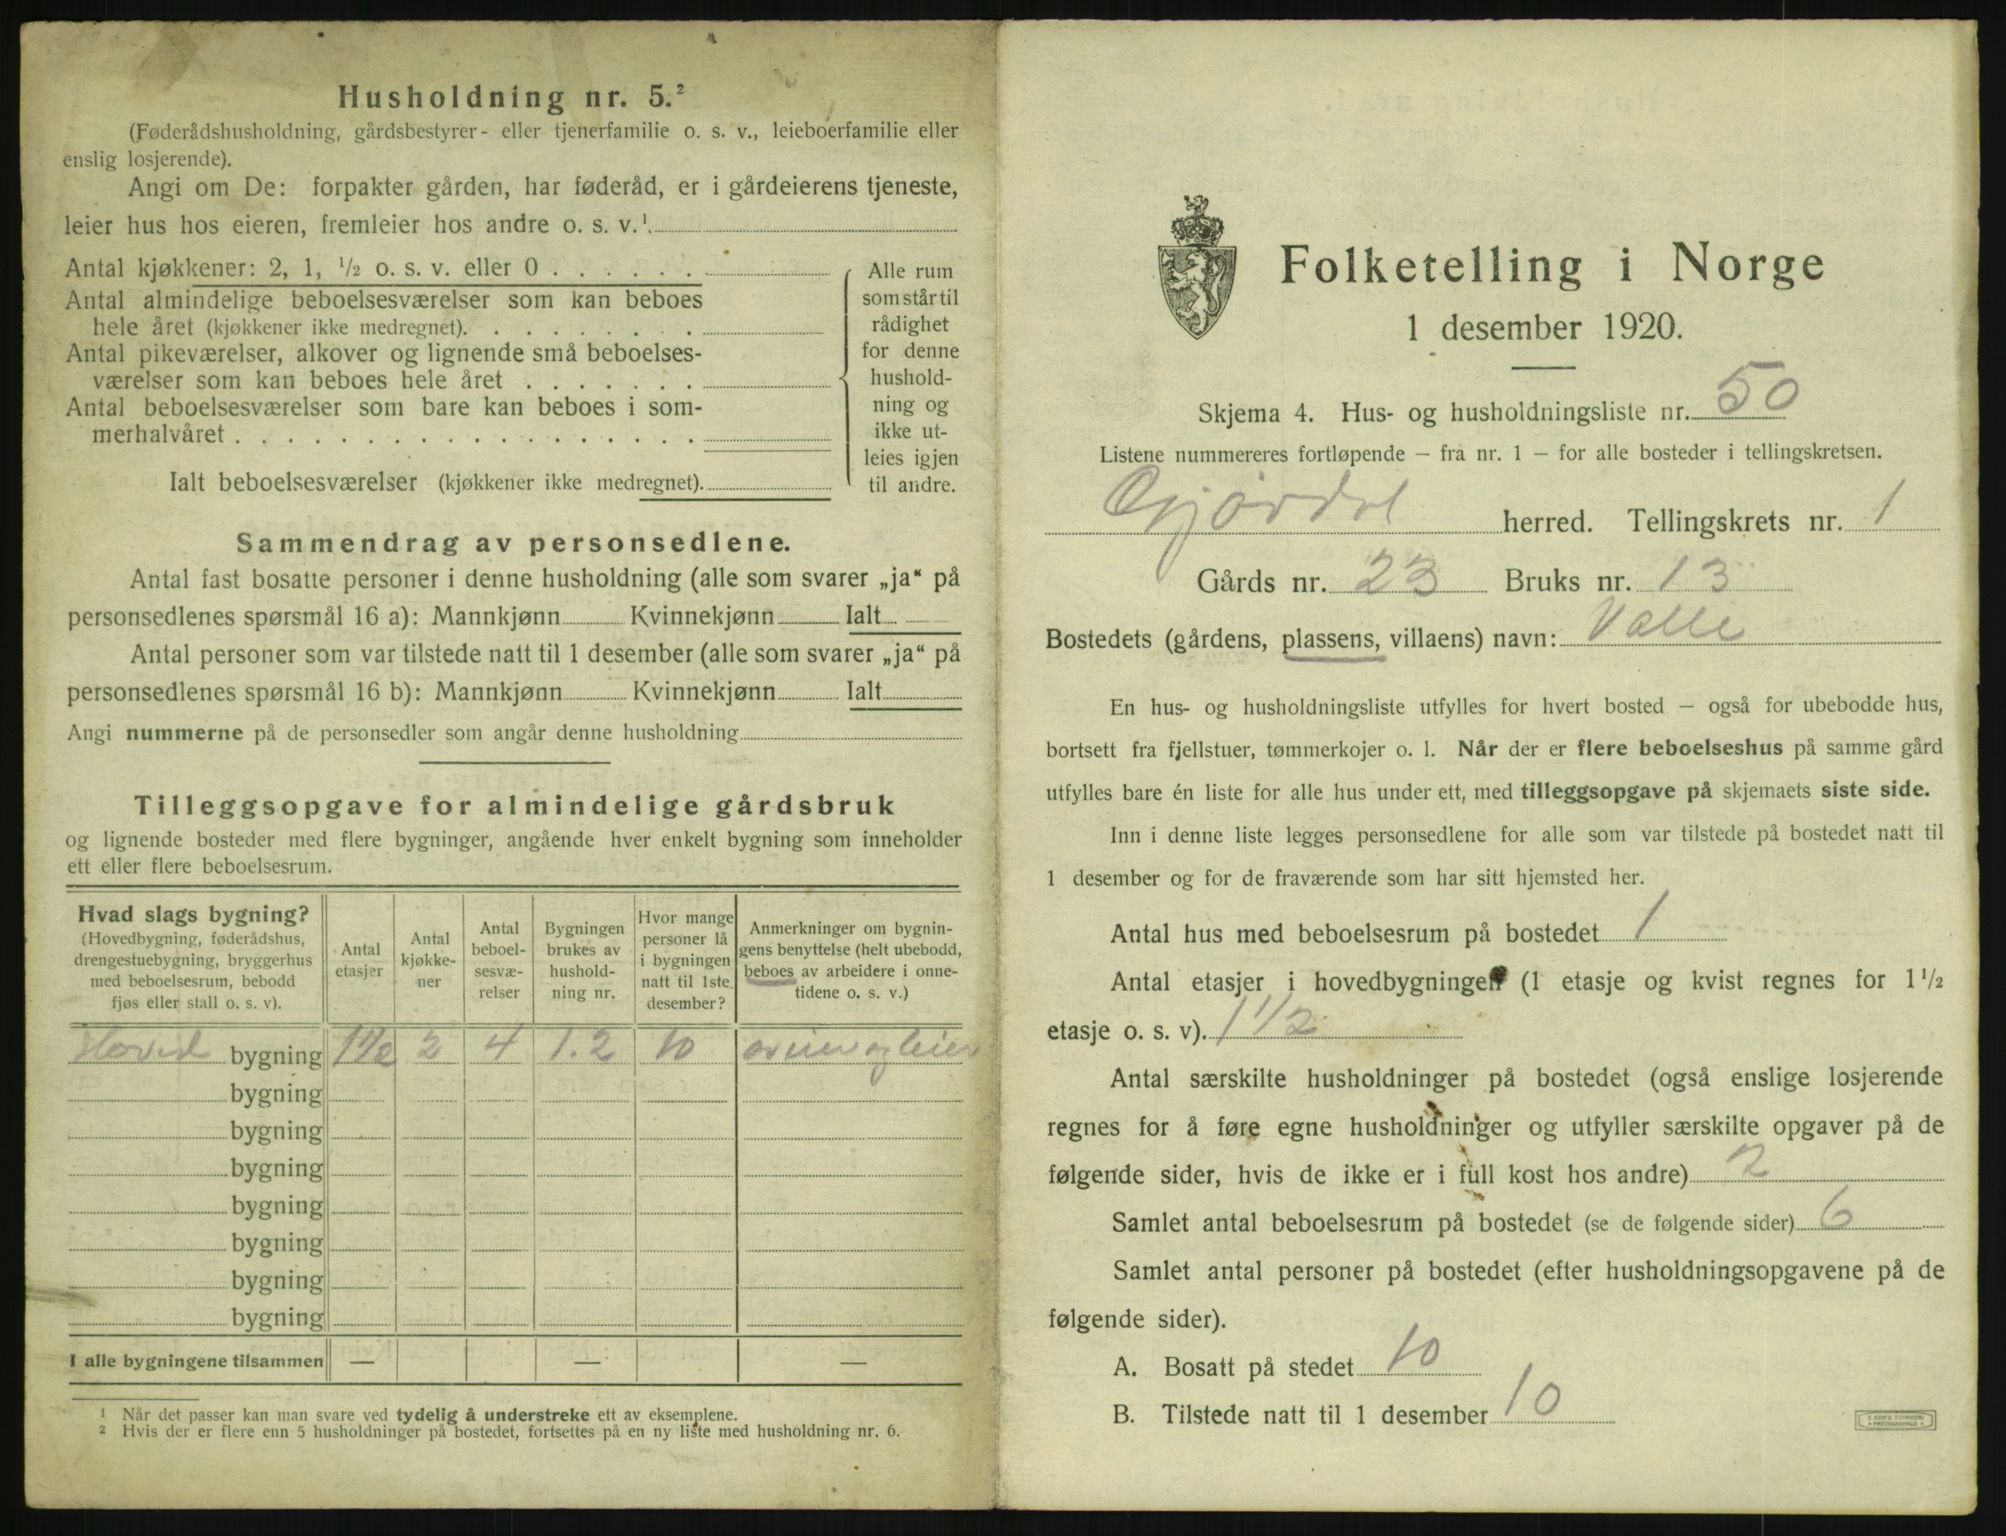 Husholdning nr. 5.²
(Føderådshusholdning, gårdsbestyrer- eller tjenerfamilie o. s. v., leieboerfamilie eller
enslig losjerende).
Angi om De: forpakter gården, har føderåd, er i gårdeierens tjeneste,
leier hus hos eieren, fremleier hos andre o. s. v.¹
Antal kjøkkener: 2, 1, ½ o. s. v. eller 0
Antal almindelige beboelsesværelser som kan beboes
hele året (kjøkkener ikke medregnet).
Antal pikeværelser, alkover og lignende små beboelses-
værelser som kan beboes hele året
Antal beboelsesværelser som bare kan beboes i som-
merhalvåret
Ialt beboelsesværelser (kjøkkener ikke medregnet).
Alle rum
som står til
rådighet
for denne
hushold-
ning og
ikke ut-
leies igjen
til andre.
Sammendrag av personsedlene.
Antal fast bosatte personer i denne husholdning (alle som svarer „ja“ på
personsedlenes spørsmål 16 a): Mannkjønn Kvinnekjønn Ialt
Antal personer som var tilstede natt til 1 desember (alle som svarer „ja“ på
personsedlenes spørsmål 16 b): Mannkjønn Kvinnekjønn Ialt
Angi nummerne på de personsedler som angår denne husholdning
Tilleggsopgave for almindelige gårdsbruk
og lignende bosteder med flere bygninger, angående hver enkelt bygning som inneholder
ett eller flere beboelsesrum.
Hvad slags bygning?
(Hovedbygning, føderådshus,
drengestuebygning, bryggerhus
med beboelsesrum, bebodd
fjøs eller stall o. s. v).
Antal
etasjer
Antal
kjøkke-
ner
Antal
beboel-
sesvæ-
relser
Bygningen
brukes av
hushold-
ning nr.
Hvor mange
personer lå
i bygningen
natt til 1ste
desember?
Anmerkninger om bygnin-
gens benyttelse (helt ubebodd,
beboes av arbeidere i onne-
tidene o. s. v.)
Hoved bygning 1½ 2 4 1.2 10 og leier
bygning
bygning
bygning
bygning
bygning
bygning
bygning
I alle bygningene tilsammen — — —
¹ Når det passer kan man svare ved tydelig å understreke ett av eksemplene.
² Hvis der er flere enn 5 husholdninger på bostedet, fortsettes på en ny liste med husholdning nr. 6.
Folketelling i Norge
1 desember 1920.
Skjema 4. Hus- og husholdningsliste nr. 50
Listene nummereres fortløpende — fra nr. 1 — for alle bosteder i tellingskretsen.
Gjørdal herred. Tellingskrets nr. 1
Gårds nr. 23 Bruks nr. 13
Bostedets (gårdens, plassens, villaens) navn: Valle
En hus- og husholdningsliste utfylles for hvert bosted — også for ubebodde hus,
bortsett fra fjellstuer, tømmerkojer o. l. Når der er flere beboelseshus på samme gård
utfylles bare én liste for alle hus under ett, med tilleggsopgave på skjemaets siste side.
Inn i denne liste legges personsedlene for alle som var tilstede på bostedet natt til
1 desember og for de fraværende som har sitt hjemsted her.
Antal hus med beboelsesrum på bostedet 1
Antal etasjer i hovedbygningen (1 etasje og kvist regnes for 1½
etasje o. s. v). 1½
Antal særskilte husholdninger på bostedet (også enslige losjerende
regnes for å føre egne husholdninger og utfyller særskilte opgaver på de
følgende sider, hvis de ikke er i full kost hos andre) 2
Samlet antal beboelsesrum på bostedet (se de følgende sider) 6
Samlet antal personer på bostedet (efter husholdningsopgavene på de
følgende sider).
A. Bosatt på stedet 10
B. Tilstede natt til 1 desember 10